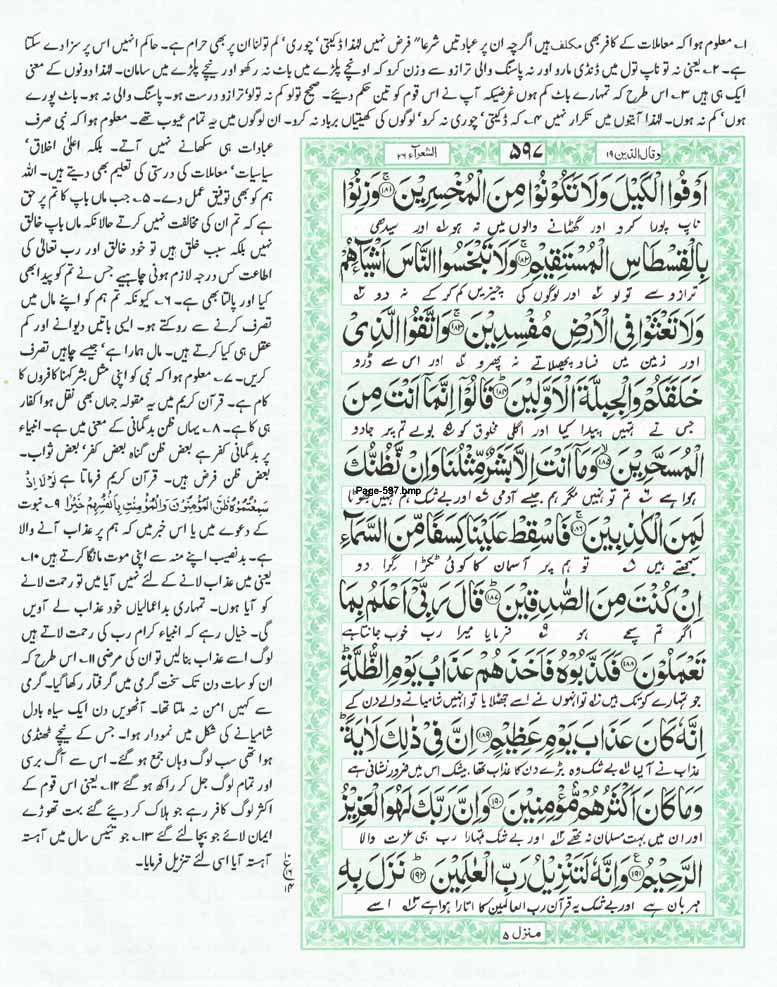 ۱۔ معلوم ہوا کہ معاملات کے کافر بھی مکلف ہیں اگرچہ ان پر عبادتیں شرعاً فرض نہیں لہٰذا ڈکیتی، چوری، کم تولنا ان پر بھی حرام ہے۔ حاکم انہیں اس پر سزا دے سکتا
ہے۔ ۲۔ یعنی نہ تو ناپ تول میں ڈنڈی مارو اور نہ پاسنگ والی ترازو سے وزن کرو کہ اونچے پلڑے میں باٹ نہ رکھو اور نیچے پلڑے میں سامان۔ لہٰذا دونوں کے معنی
ایک ہی ہیں ۳۔ اس طرح کہ تمہارے باٹ کم ہوں غرضیکہ آپ نے اس قوم کو تین حکم دیئے۔ صحیح تولو کم نہ تولو، ترازو درست ہو۔ پاسنگ والی نہ ہو۔ باٹ پورے
ہوں، کم نہ ہوں۔ لہٰذا آیتوں میں تکرار نہیں ۴۔ کہ ڈکیتی، چوری نہ کرو، لوگوں کی کھیتیاں برباد نہ کرو۔ ان لوگوں میں یہ تمام عیوب تھے۔ معلوم ہوا کہ نبی صرف
عبادات ہی سکھانے نہیں آتے۔ بلکہ اعلیٰ اخلاق،
سیاسیات، معاملات کی درستی کی تعلیم بھی دیتے ہیں۔ اللہ
ہم کو بھی توفیق عمل دے۔ ۵۔ جب ماں باپ کا تم پر حق
ہے کہ تم ان کی مخالفت نہیں کرتے حالانکہ ماں باپ خالق
نہیں بلکہ سبب خلق ہیں تو خود خالق اور رب تعالیٰ کی
اطاعت کس درجہ لازم ہونی چاہیے جس نے تم کو پیدا بھی
کیا اور پالتا بھی ہے۔ ۶۔ کیونکہ تم ہم کو اپنے مال میں
تصرف کرنے سے روکتے ہو۔ ایسی باتیں دیوانے اور کم
عقل ہی کیا کرتے ہیں۔ مال ہمارا ہے، جیسے چاہیں تصرف
کریں۔ ۷۔ معلوم ہوا کہ نبی کو اپنی مثل بشر کہنا کافروں کا
کام ہے۔ قرآن کریم میں یہ مقولہ جہاں بھی نقل ہوا کفار
ہی کا ہے۔ ۸۔ یہاں ظن بدگمانی کے معنی میں ہے۔ انبیاء
پر بدگمانی کفر ہے بعض ظن گناہ بعض کفر، بعض ثواب۔
بعض ظن فرض ہیں۔ قرآن کریم فرماتا ہے لَوْلَا إِذْ
سَمِعْتُمُوهُ ظَنَّ الْمُؤْمِنُونَ وَالْمُؤْمِنٰتُ بِأَنْفُسِهِمْ خَيْرًا ۹۔ نبوت
کے دعوے میں یا اس خبر میں کہ ہم پر عذاب آنے والا
ہے۔ بدنصیب اپنے منہ سے اپنی موت مانگا کرتے ہیں ۱۰۔
یعنی میں عذاب لانے کے لئے نہیں آیا میں تو رحمت لانے
کو آیا ہوں۔ تمہاری بداعمالیاں خود عذاب لے آویں
گی۔ خیال رہے کہ انبیاء کرام رب کی رحمت لاتے ہیں
لوگ اسے عذاب بنالیں تو ان کی مرضی ۱۱۔ اس طرح کہ
ان کو سات دن تک سخت گرمی میں گرفتار رکھا گیا۔ گرمی
سے کہیں امن نہ ملتا تھا۔ آٹھویں دن ایک سیاہ بادل
شامیانے کی شکل میں نمودار ہوا۔ جس کے نیچے ٹھنڈی
ہوا تھی سب لوگ وہاں جمع ہو گئے۔ اس سے آگ برسی
اور تمام لوگ جل کر راکھ ہو گئے ۱۲۔ یعنی اس قوم کے
اکثر لوگ کافر رہے جو ہلاک کر دیئے گئے بہت تھوڑے
ایمان لائے جو بچا لئے گئے ۱۳۔ جو تئیس سال میں آہستہ
آہستہ آیا اسی لئے تنزیل فرمایا۔
وقال الذين ۱۹ ۵۹۷ الشعرآء ۲۶
اَوْفُوا الْكَيْلَ وَلَا تَكُوْنُوْا مِنَ الْمُخْسِرِيْنَ ۱۸۱ وَزِنُوْا
ناپ پورا کرو اور گھٹانے والوں میں نہ ہو ۱ اور سیدھی
بِالْقِسْطَاسِ الْمُسْتَقِيْمِ ۱۸۲ وَلَا تَبْخَسُوا النَّاسَ اَشْيَآءَهُمْ
ترازو سے تولو ۲ اور لوگوں کی چیزیں کم کر کے نہ دو ۳
وَلَا تَعْثَوْا فِى الْاَرْضِ مُفْسِدِيْنَ ۱۸۳ وَاتَّقُوا الَّذِىْ
اور زمین میں فساد پھیلاتے نہ پھرو ۴ اور اس سے ڈرو
خَلَقَكُمْ وَالْجِبِلَّةَ الْاَوَّلِيْنَ ۱۸۴ قَالُوْۤا اِنَّمَاۤ اَنْتَ مِنَ
جس نے تمہیں پیدا کیا اور اگلی مخلوق کو ۵ بولے تم پر جادو
الْمُسَحَّرِيْنَ ۱۸۵ وَمَاۤ اَنْتَ اِلَّا بَشَرٌ مِّثْلُنَا وَاِنْ نَّظُنُّكَ
Page-597.bmp
ہوا ہے ۶ تم تو نہیں مگر ہم جیسے آدمی ۷ اور بے شک ہم تمہیں جھوٹا
لَمِنَ الْكٰذِبِيْنَ ۱۸۶ فَاَسْقِطْ عَلَيْنَا كِسَفًا مِّنَ السَّمَآءِ
سمجھتے ہیں ۸ تو ہم پر آسمان کا کوئی ٹکڑا گرا دو
اِنْ كُنْتَ مِنَ الصّٰدِقِيْنَ ۱۸۷ قَالَ رَبِّىْۤ اَعْلَمُ بِمَا
اگر تم سچے ہو ۹ فرمایا میرا رب خوب جانتا ہے
تَعْمَلُوْنَ ۱۸۸ فَكَذَّبُوْهُ فَاَخَذَهُمْ عَذَابُ يَوْمِ الظُّلَّةِ
جو تمہارے کوتک ہیں ۱۰ تو انہوں نے اسے جھٹلایا تو انہیں شامیانے والے دن کے
اِنَّهٗ كَانَ عَذَابَ يَوْمٍ عَظِيْمٍ ۱۸۹ اِنَّ فِىْ ذٰلِكَ لَاٰيَةً
عذاب نے آلیا ۱۱ بے شک وہ بڑے دن کا عذاب تھا، بیشک اس میں ضرور نشانی ہے
وَمَا كَانَ اَكْثَرُهُمْ مُّؤْمِنِيْنَ ۱۹۰ وَاِنَّ رَبَّكَ لَهُوَ الْعَزِيْزُ
اور ان میں بہت مسلمان نہ تھے ۱۲ اور بے شک تمہارا رب ہی عزت والا
الرَّحِيْمُ ۱۹۱ وَاِنَّهٗ لَتَنْزِيْلُ رَبِّ الْعٰلَمِيْنَ ۱۹۲ نَزَلَ بِهِ
مہربان ہے اور بے شک یہ قرآن رب العالمین کا اتارا ہوا ہے ۱۳ اسے
منزل ۵